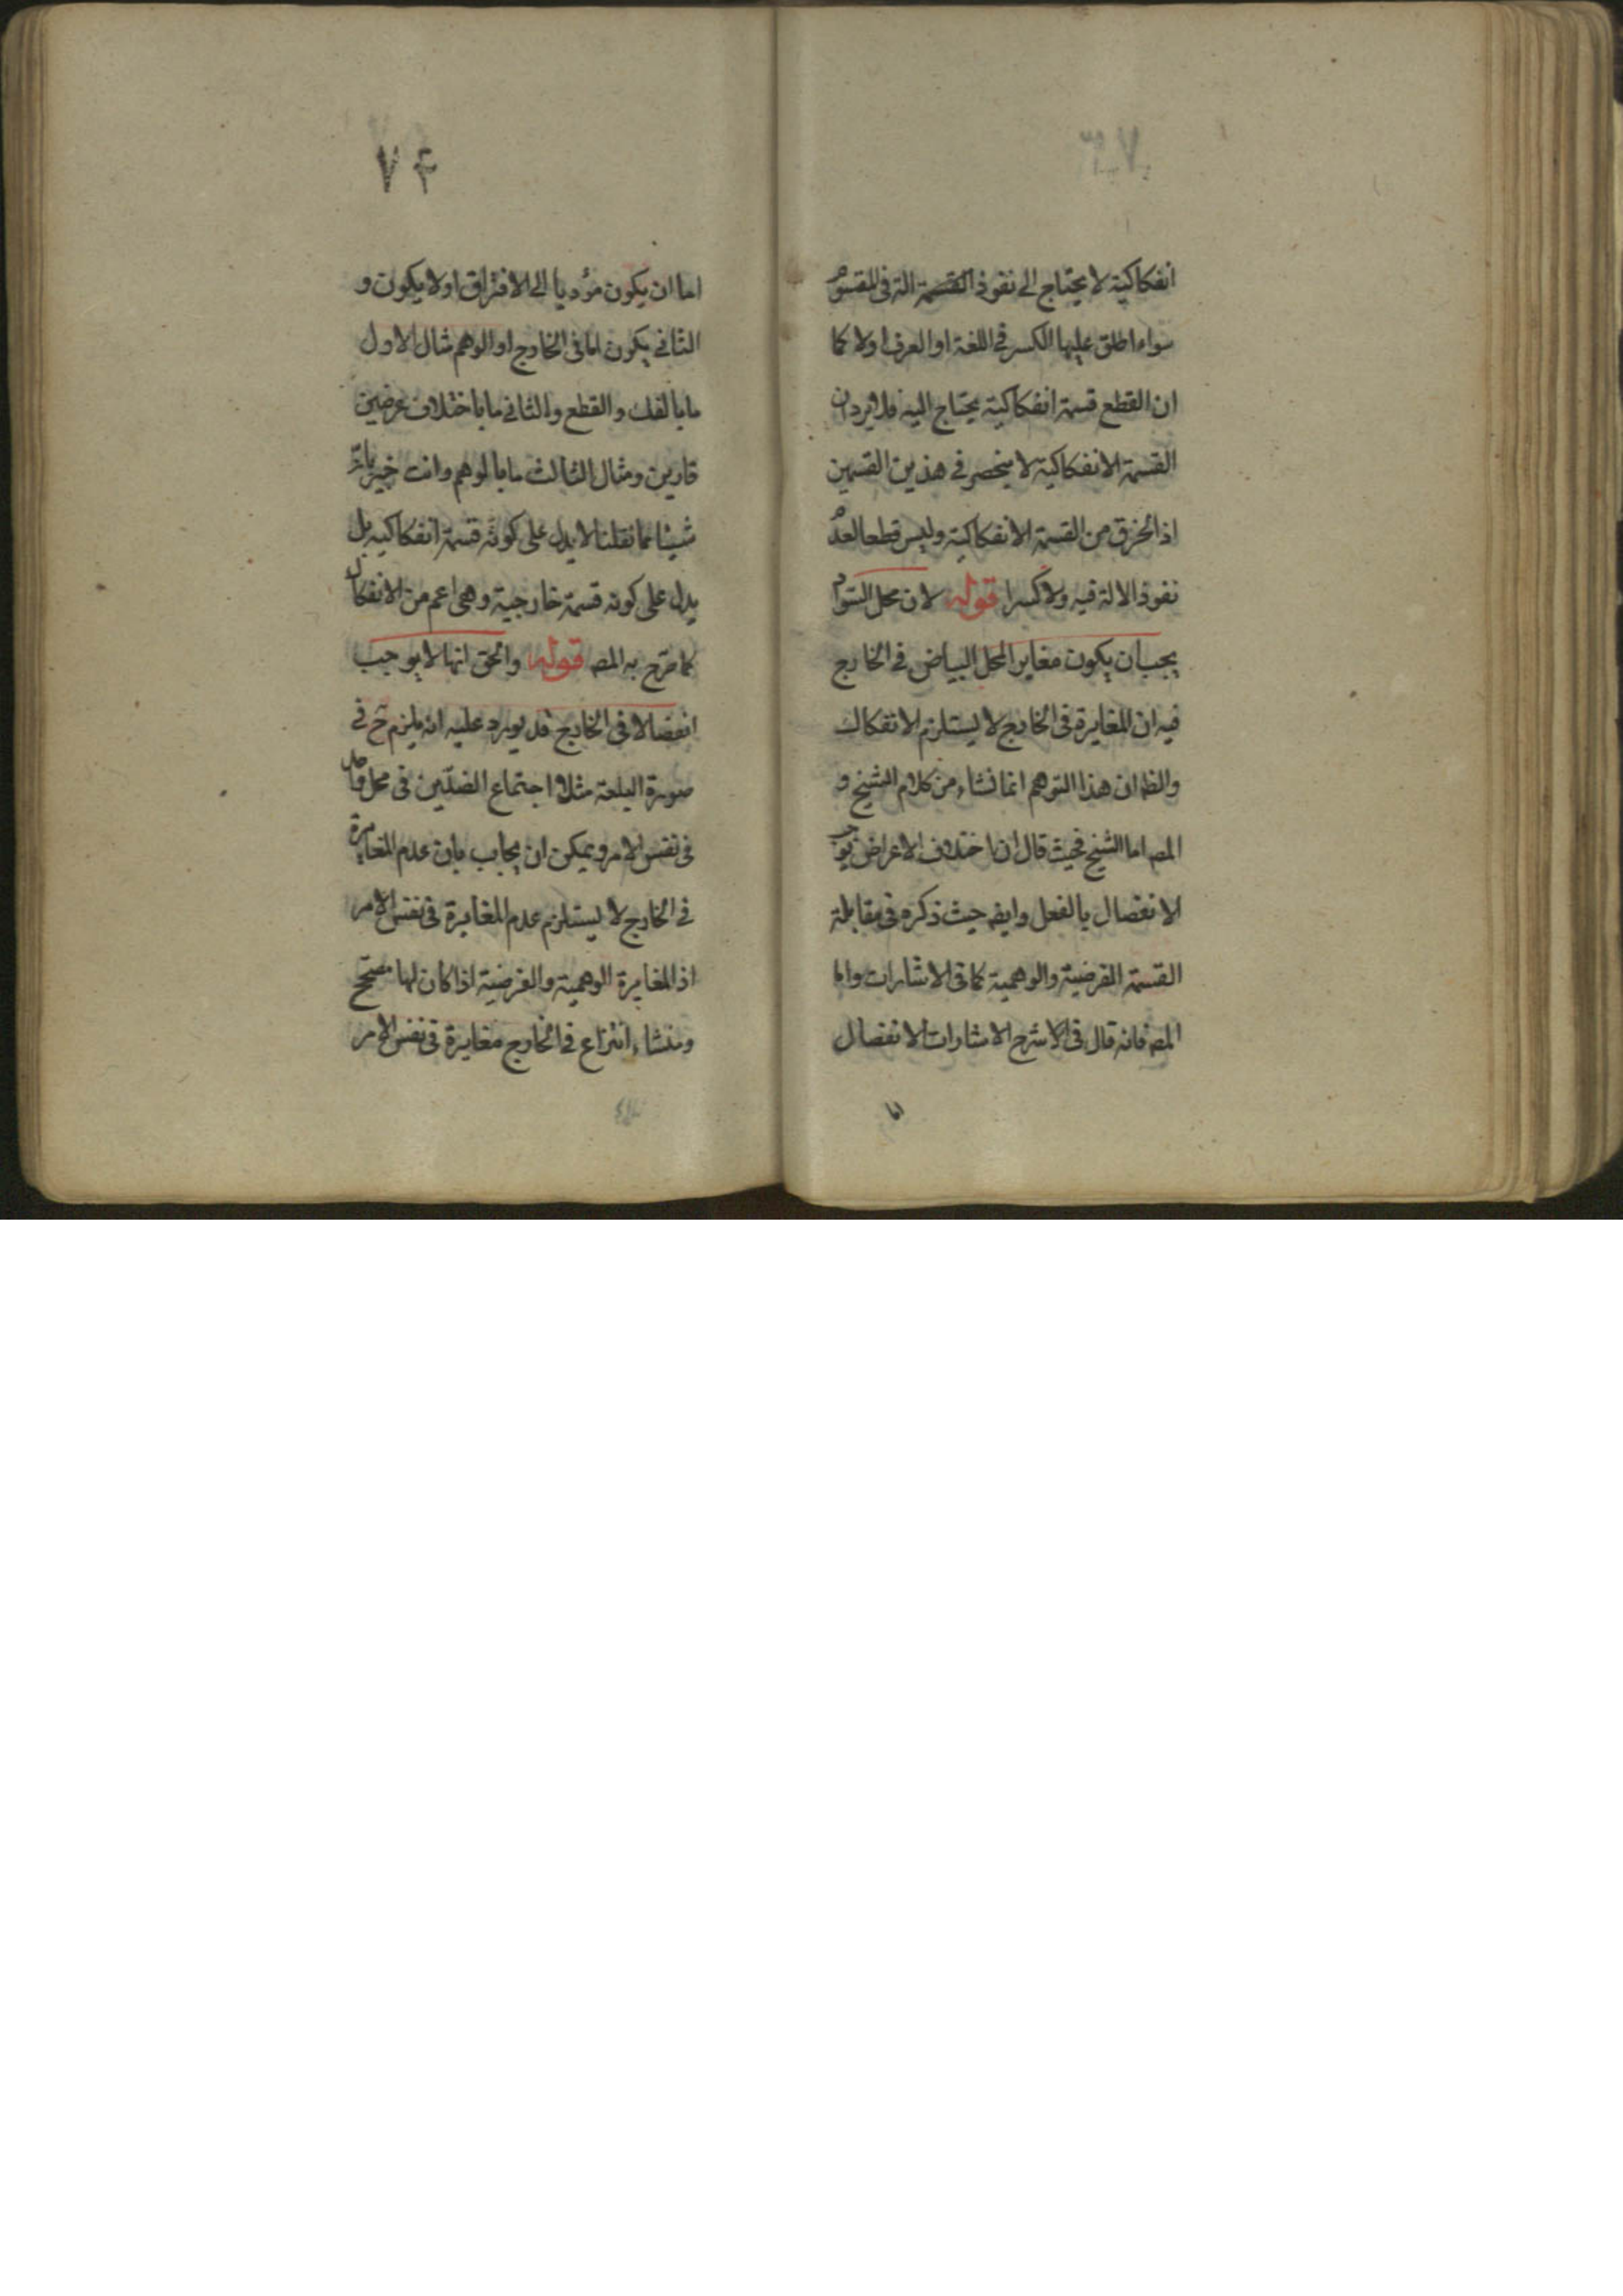 انفكاكية لا يحتاج الى نفوذ القسمة الة فى المقسوم
سواء اطلق عليها الكسر فى اللغة او العرف اولا كما
ان القطع قسمة انفكاكية يحتاج اليه فلا يرد ان
القسمة الانفكاكية لا ينحصر فى هذين القسمين
اذ الخرق من القسمة الانفكاكية وليس قطعا لعدم
نفوذ الالة فيه ولا كسرا قوله لان محل السواد
يجب ان يكون مغاير المحل البياض فى الخارج
فيه ان المغايرة فى الخارج لا يستلزم الانفكاك
والظ ان هذا التوهم انما نشاء من كلام الشيخ و
المص اما الشيخ فحيث قال ان اختلاف الاعراض يوجب
الانفصال بالفعل وايض حيث ذكره فى مقابلة
القسمة الفرضية والوهمية كما فى الاشارات واما
المص فانه قال فى شرح الاشارات الانفصال
اما
۷۴
اما ان يكون مؤديا الى الافتراق اولا يكون و
الثانى يكون اما فى الخارج او الوهم مثال الاول
ما بالفك والقطع والثانى ما باختلاف عرضين
قارين ومثال الثالث ما بالوهم وانت خبير بان
شيئا مما نقلنا لا يدل على كونه قسمة انفكاكيه بل
يدل على كونه قسمة خارجية وهى اعم من الانفكاك
كما صرح به المص قوله والحق انها لا يوجب
انفصالا فى الخارج قد يورد عليه انه يلزم ح فى
صورة البلقة مثلا اجتماع الضدّين فى محل واحد
فى نفس الامر ويمكن ان يجاب بان عدم المغايرة
فى الخارج لا يستلزم عدم المغايرة فى نفس الامر
اذ المغايرة الوهمية والفرضية اذا كان لها مصحح
ومنشاء انتزاع فى الخارج مغايرة فى نفس الامر